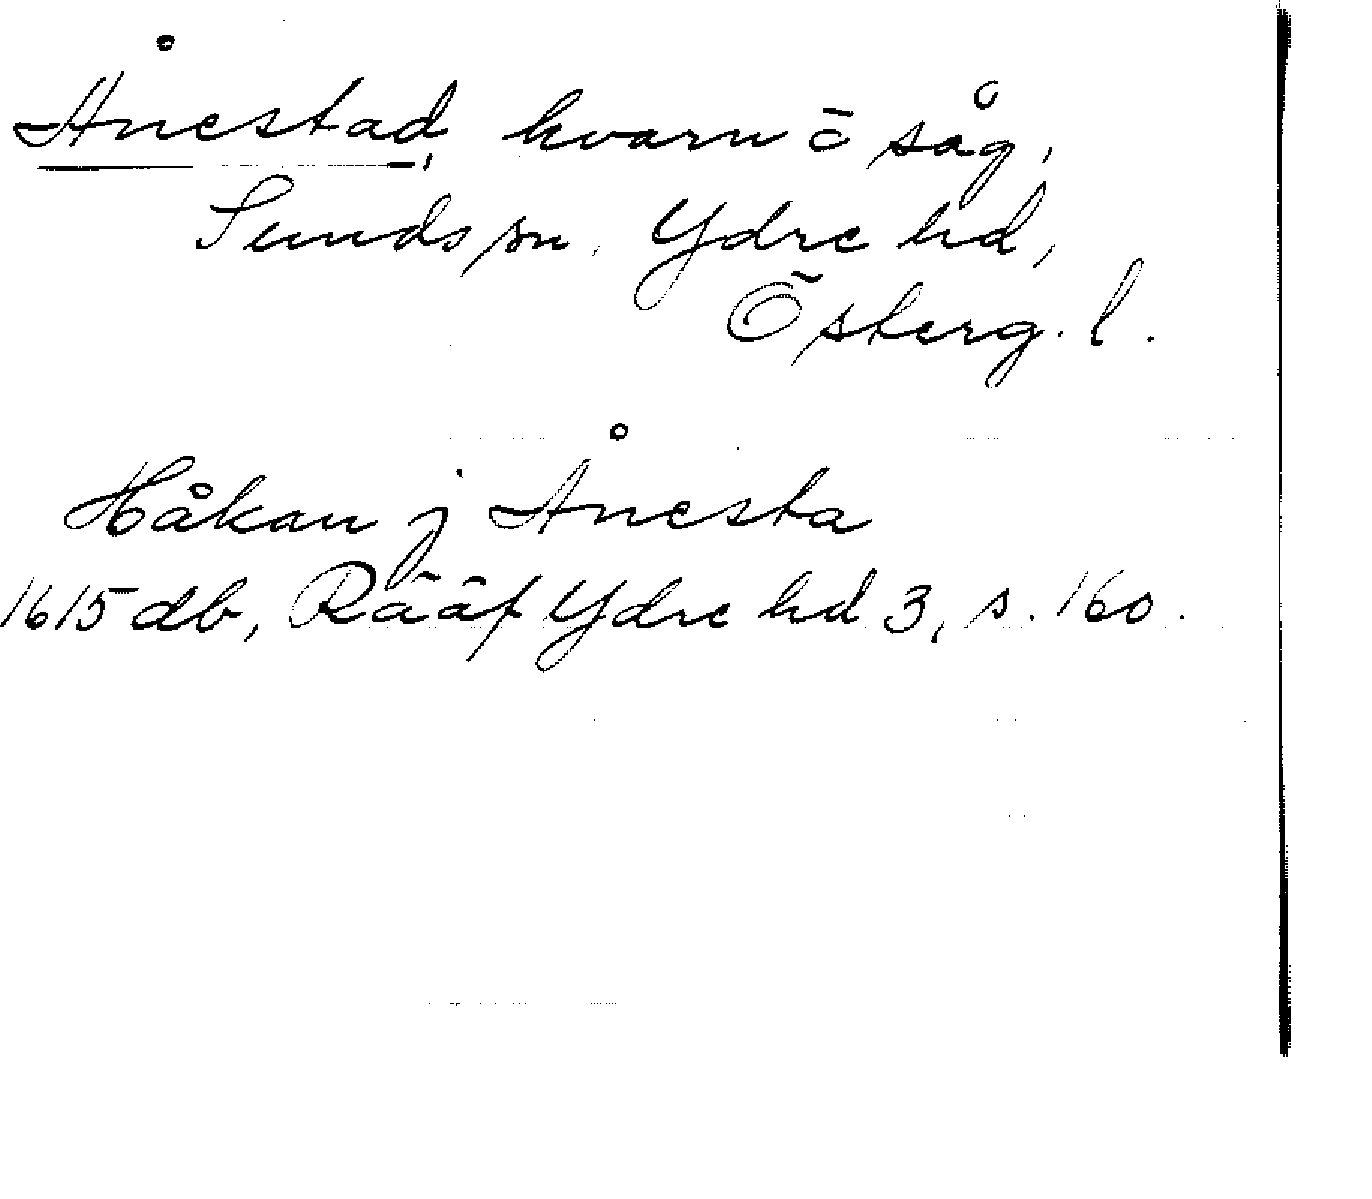 Ånestad, kvarn ō såg,
Sunds sn. Ydre hd,
Österg. l.
Håkan j Ånesta
1615 db, Rääf Ydre hd 3, s. 160.